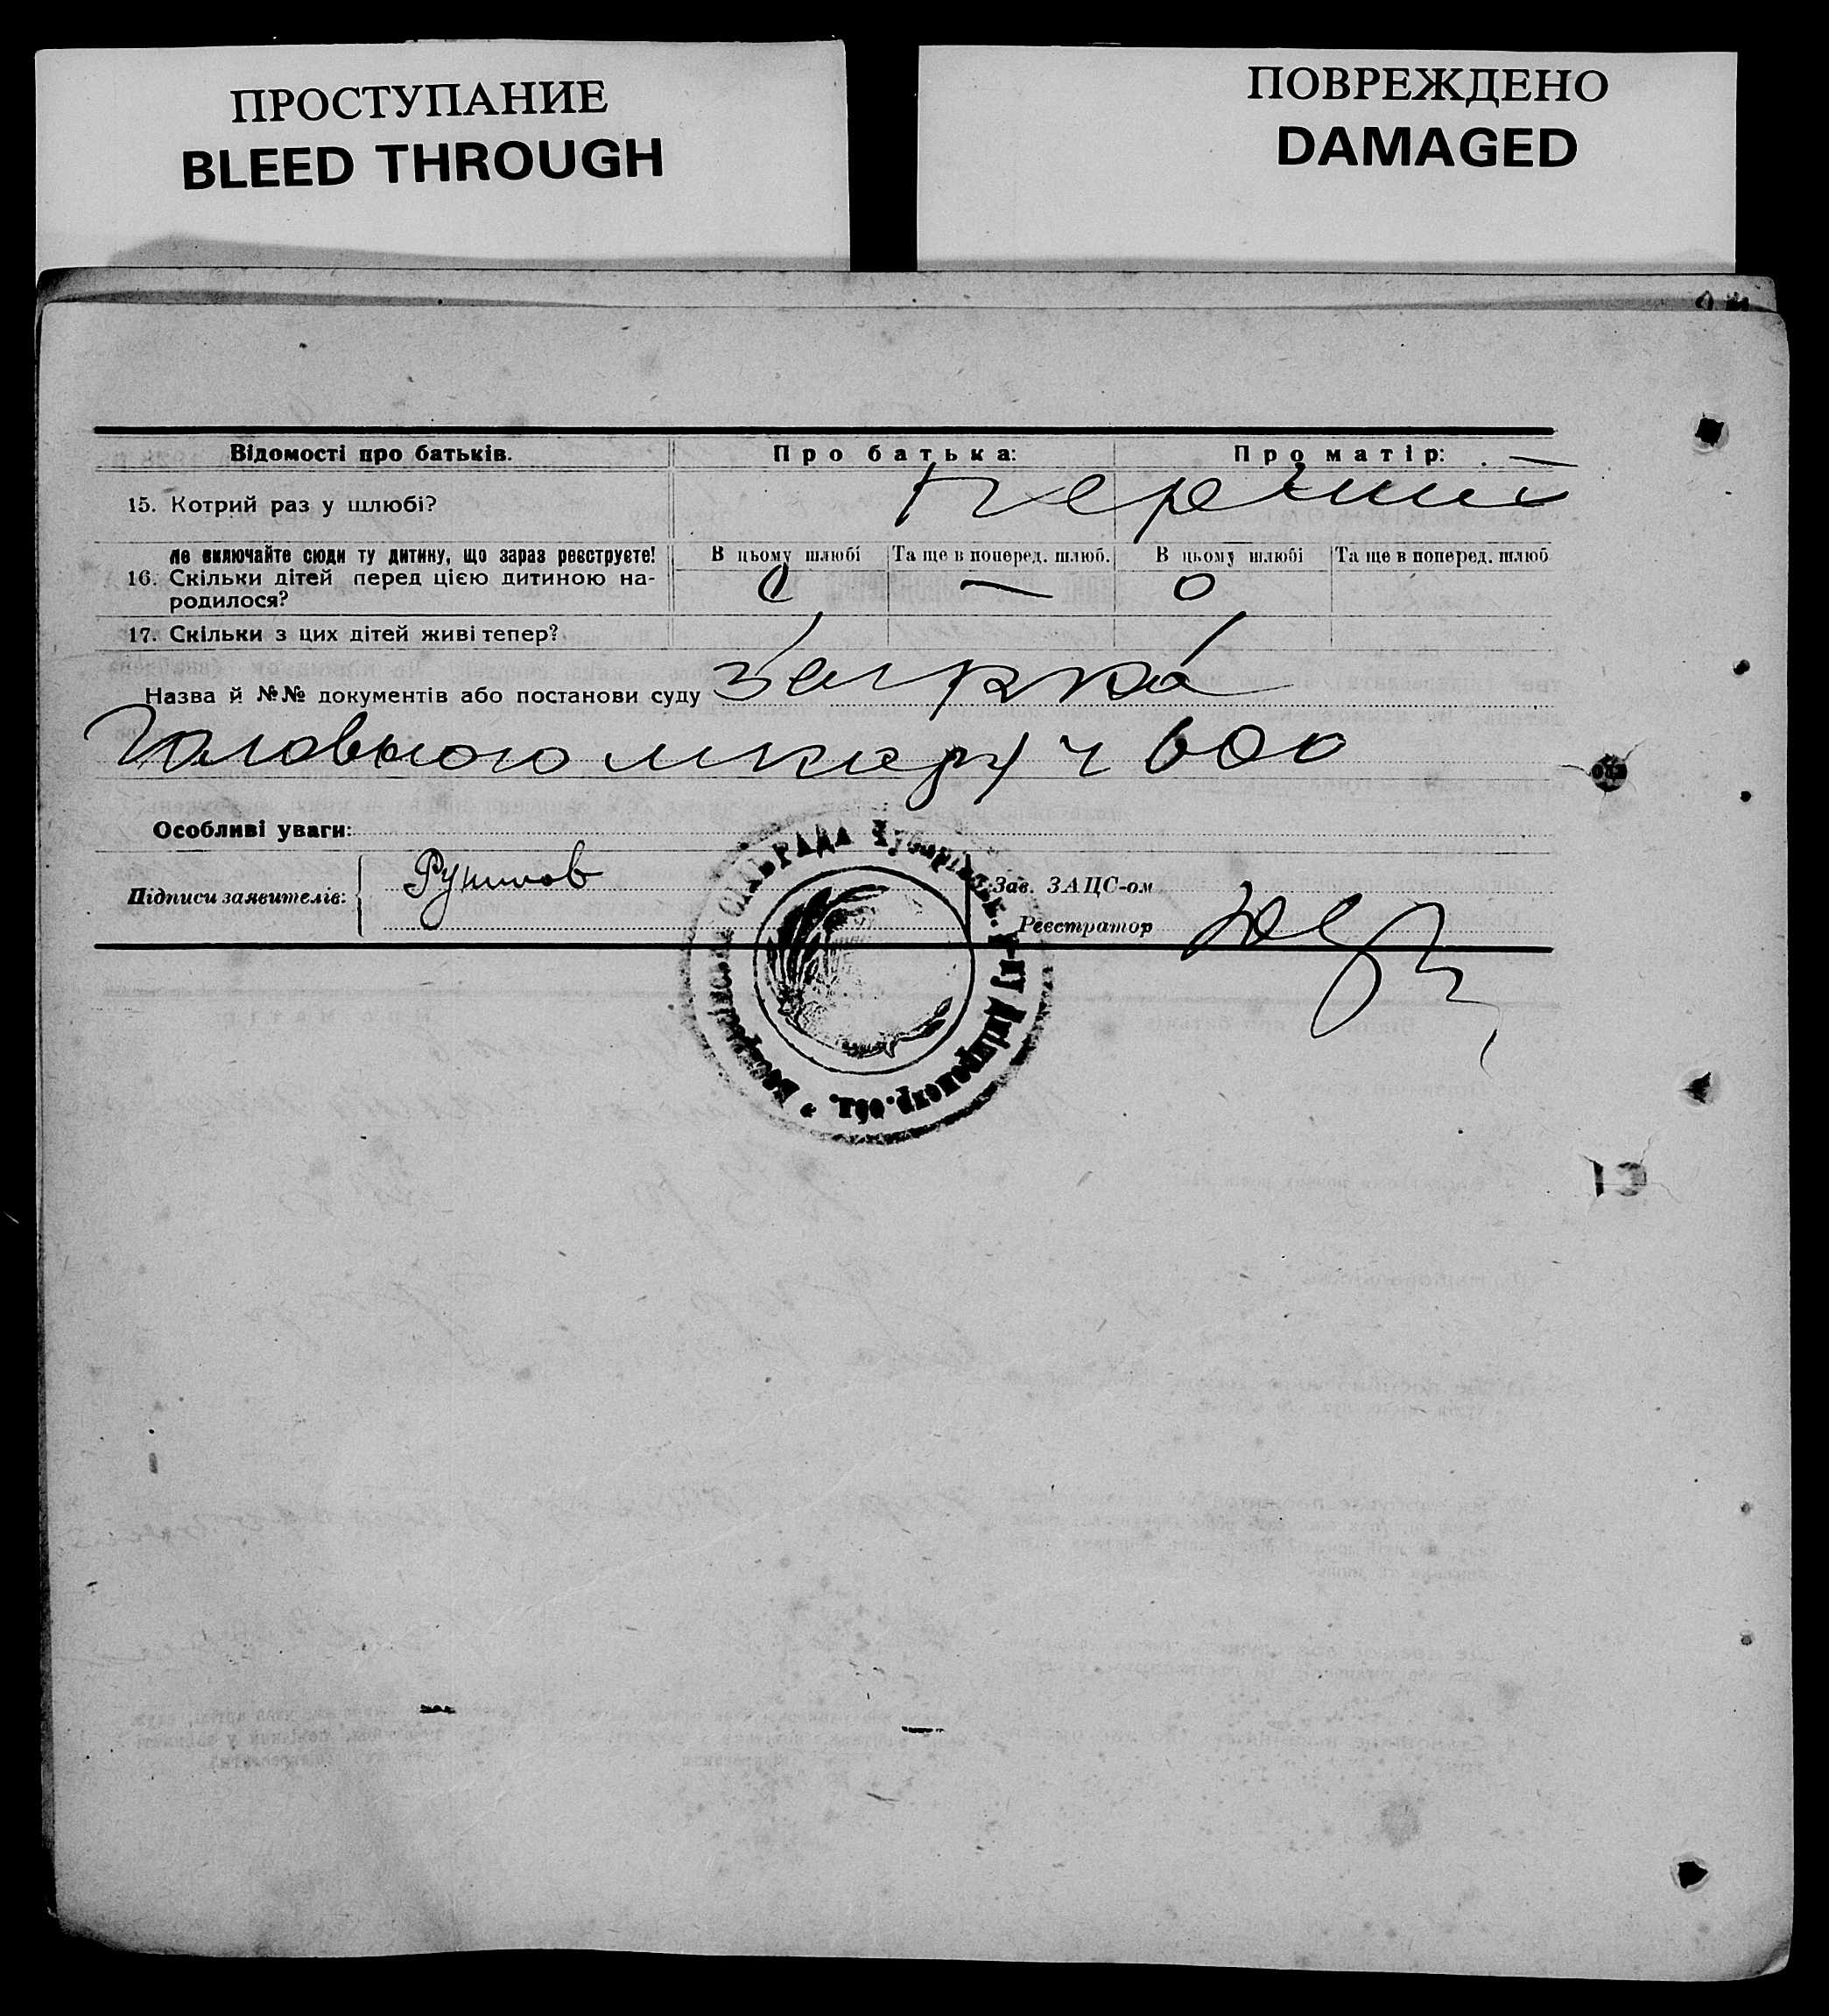 ПРОСТУПАНИЕ
BLEED THROUGH
ПОВРЕЖДЕНО
DAMAGED
Відомості про батьків. Про батька: Про матір:
15. Котрий раз у шлюбі? перший
Не включайте сюди ту дитину, що зараз реєструєте! В цьому шлюбі Та ще в поперед. шлюб. В цьому шлюбі Та ще в поперед. шлюб
16. Скільки дітей перед цією дитиною на-
родилося? 0 — 0
17. Скільки з цих дітей живі тепер?
Назва й №№ документів або постанови суду
Головного
Особливі уваги:
Підписи заявителів: Зав. ЗАЦС-ом
Реєстратор
СІЛЬРАДА Чубарівськ. р-ну Дніпропетр. обл.